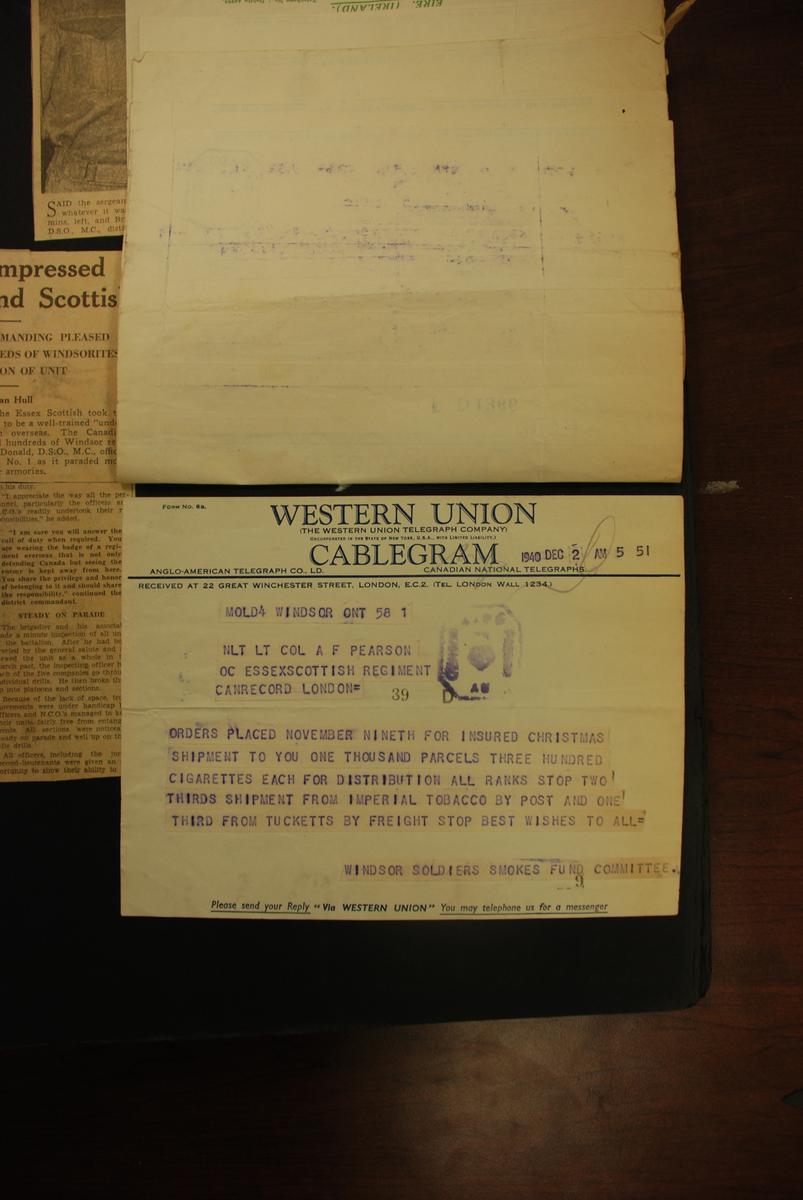 EIRE. (IRELAND).
SAID the sergean
whatever it wa
mins, left, and Br
D.S.O., M.C., dist
mpressed
nd Scottis
MANDING PLEASED
EDS OF WINDSORITES
ON OF UNIT
an Hull
he Essex Scottish took
to be a well-trained "und
overseas. The Canadi
hundreds of Windsor re
Donald, D.S.O., M.C., offic
No. 1 as it paraded
armories.
his duty.
"I appreciate the way all the per-
onnel, particularly the officers
C.O.'s readily undertook their
onsibilities," he added.
"I am sure you will answer the
call of duty when required. You
are wearing the badge of a regi-
ment overseas that is not only
defending Canada but seeing the
enemy is kept away from here.
You share the privilege and honor
of belonging to it and should share
the responsibility," continued the
district commandant.
STEADY ON PARADE
The brigadier and his associat
ade a minute inspection of all un
the battalion. After he had be
the general salute and
ewed the unit as a whole in
arch past, the inspecting officer
ch of the five companies go throu
dividual drills. He then broke th
into platoons and sections.
Because of the lack of space,
ovements were under handicap
fficers and N.C.O.'s managed to
eir units fairly free from entang
ments. All sections were notice
eady on parade and well up on th
fle drills.
All officers, including the
econd-lieutenants were given an
ortunity to show their ability to
Form No. 6a.
WESTERN UNION
(THE WESTERN UNION TELEGRAPH COMPANY)
(INCORPORATED IN THE STATE OF NEW YORK, U.S.A., WITH LIMITED LIABILITY.)
CABLEGRAM 1940 DEC 2 AM 5 51
ANGLO-AMERICAN TELEGRAPH CO., LD. CANADIAN NATIONAL TELEGRAPHS.
RECEIVED AT 22 GREAT WINCHESTER STREET, LONDON, E.C.2. (TEL. LONDON WALL 1234.)
MOLD4 WINDSOR ONT 58 1
NLT LT COL A F PEARSON
OC ESSEXSCOTTISH REGIMENT
CANRECORD LONDON= 39
ORDERS PLACED NOVEMBER NINETH FOR INSURED CHRISTMAS
SHIPMENT TO YOU ONE THOUSAND PARCELS THREE HUNDRED
CIGARETTES EACH FOR DISTRIBUTION ALL RANKS STOP TWO
THIRDS SHIPMENT FROM IMPERIAL TOBACCO BY POST AND ONE
THIRD FROM TUCKETTS BY FREIGHT STOP BEST WISHES TO ALL=
WINDSOR SOLDIERS SMOKES FUND COMMITTEE.
9
Please send your Reply "Via WESTERN UNION" You may telephone us for a messenger